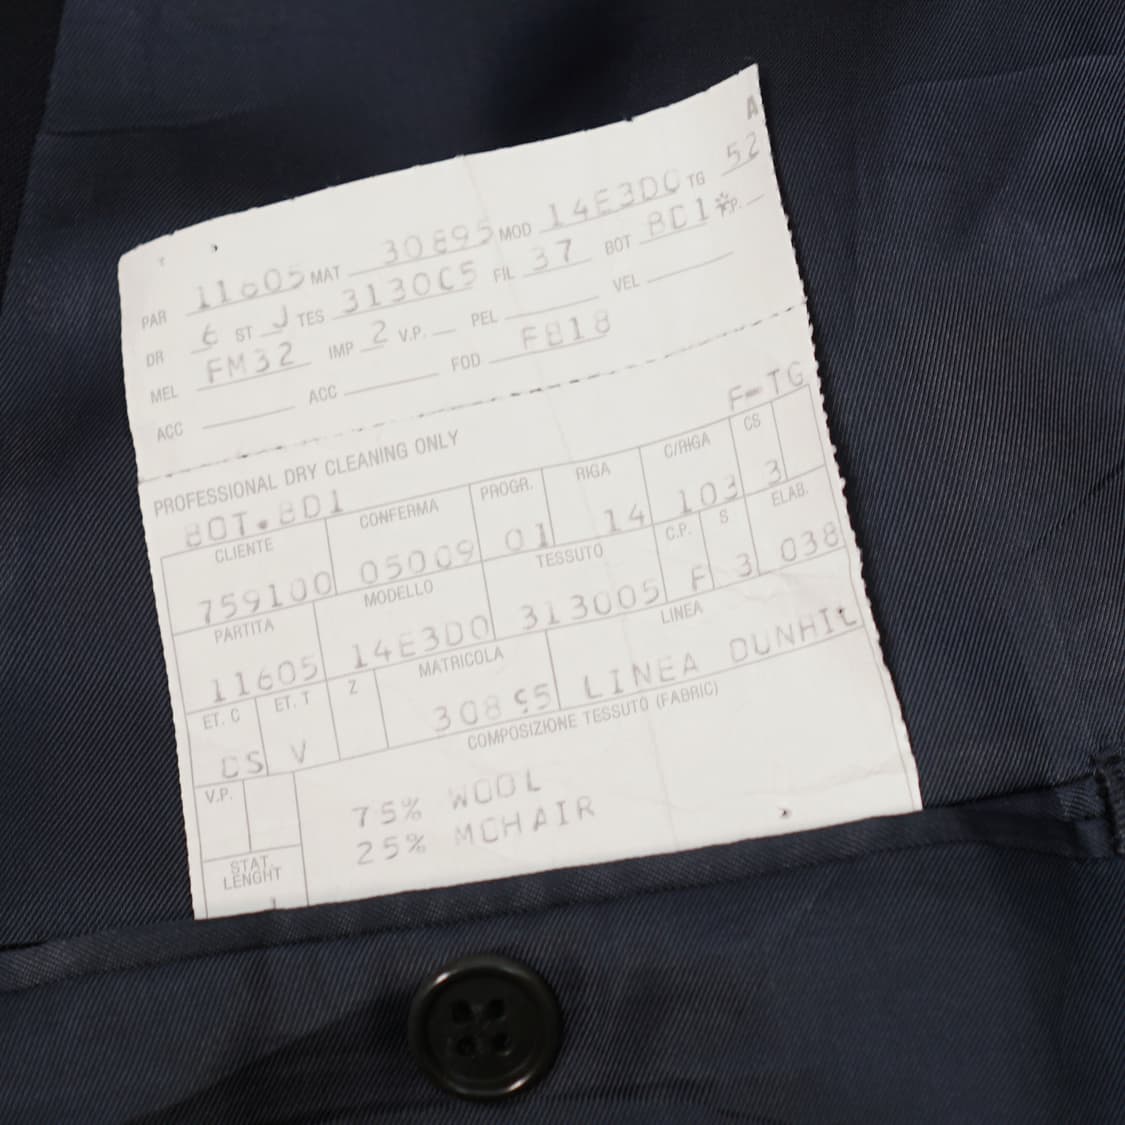 A
PAR 11605 MAT 30895 MOD 14E3D0 TG 52
DR 6 ST J TES 313005 FIL 37 BOT BD1* P.
MEL FM32 IMP 2 V.P. PEL VEL
ACC ACC FOD F818
PROFESSIONAL DRY CLEANING ONLY F-TG
BOT.BD1
CLIENTE CONFERMA PROGR. RIGA C/RIGA CS
759100 05009 01 14 103 3
PARTITA MODELLO TESSUTO C.P. S ELAB.
11605 14E3D0 313005 F 3 038
ET. C ET. T Z MATRICOLA LINEA
CS V 30895 LINEA DUNHIL
V.P. COMPOSIZIONE TESSUTO (FABRIC)
75% WOOL
25% MOHAIR
STAT.
LENGHT